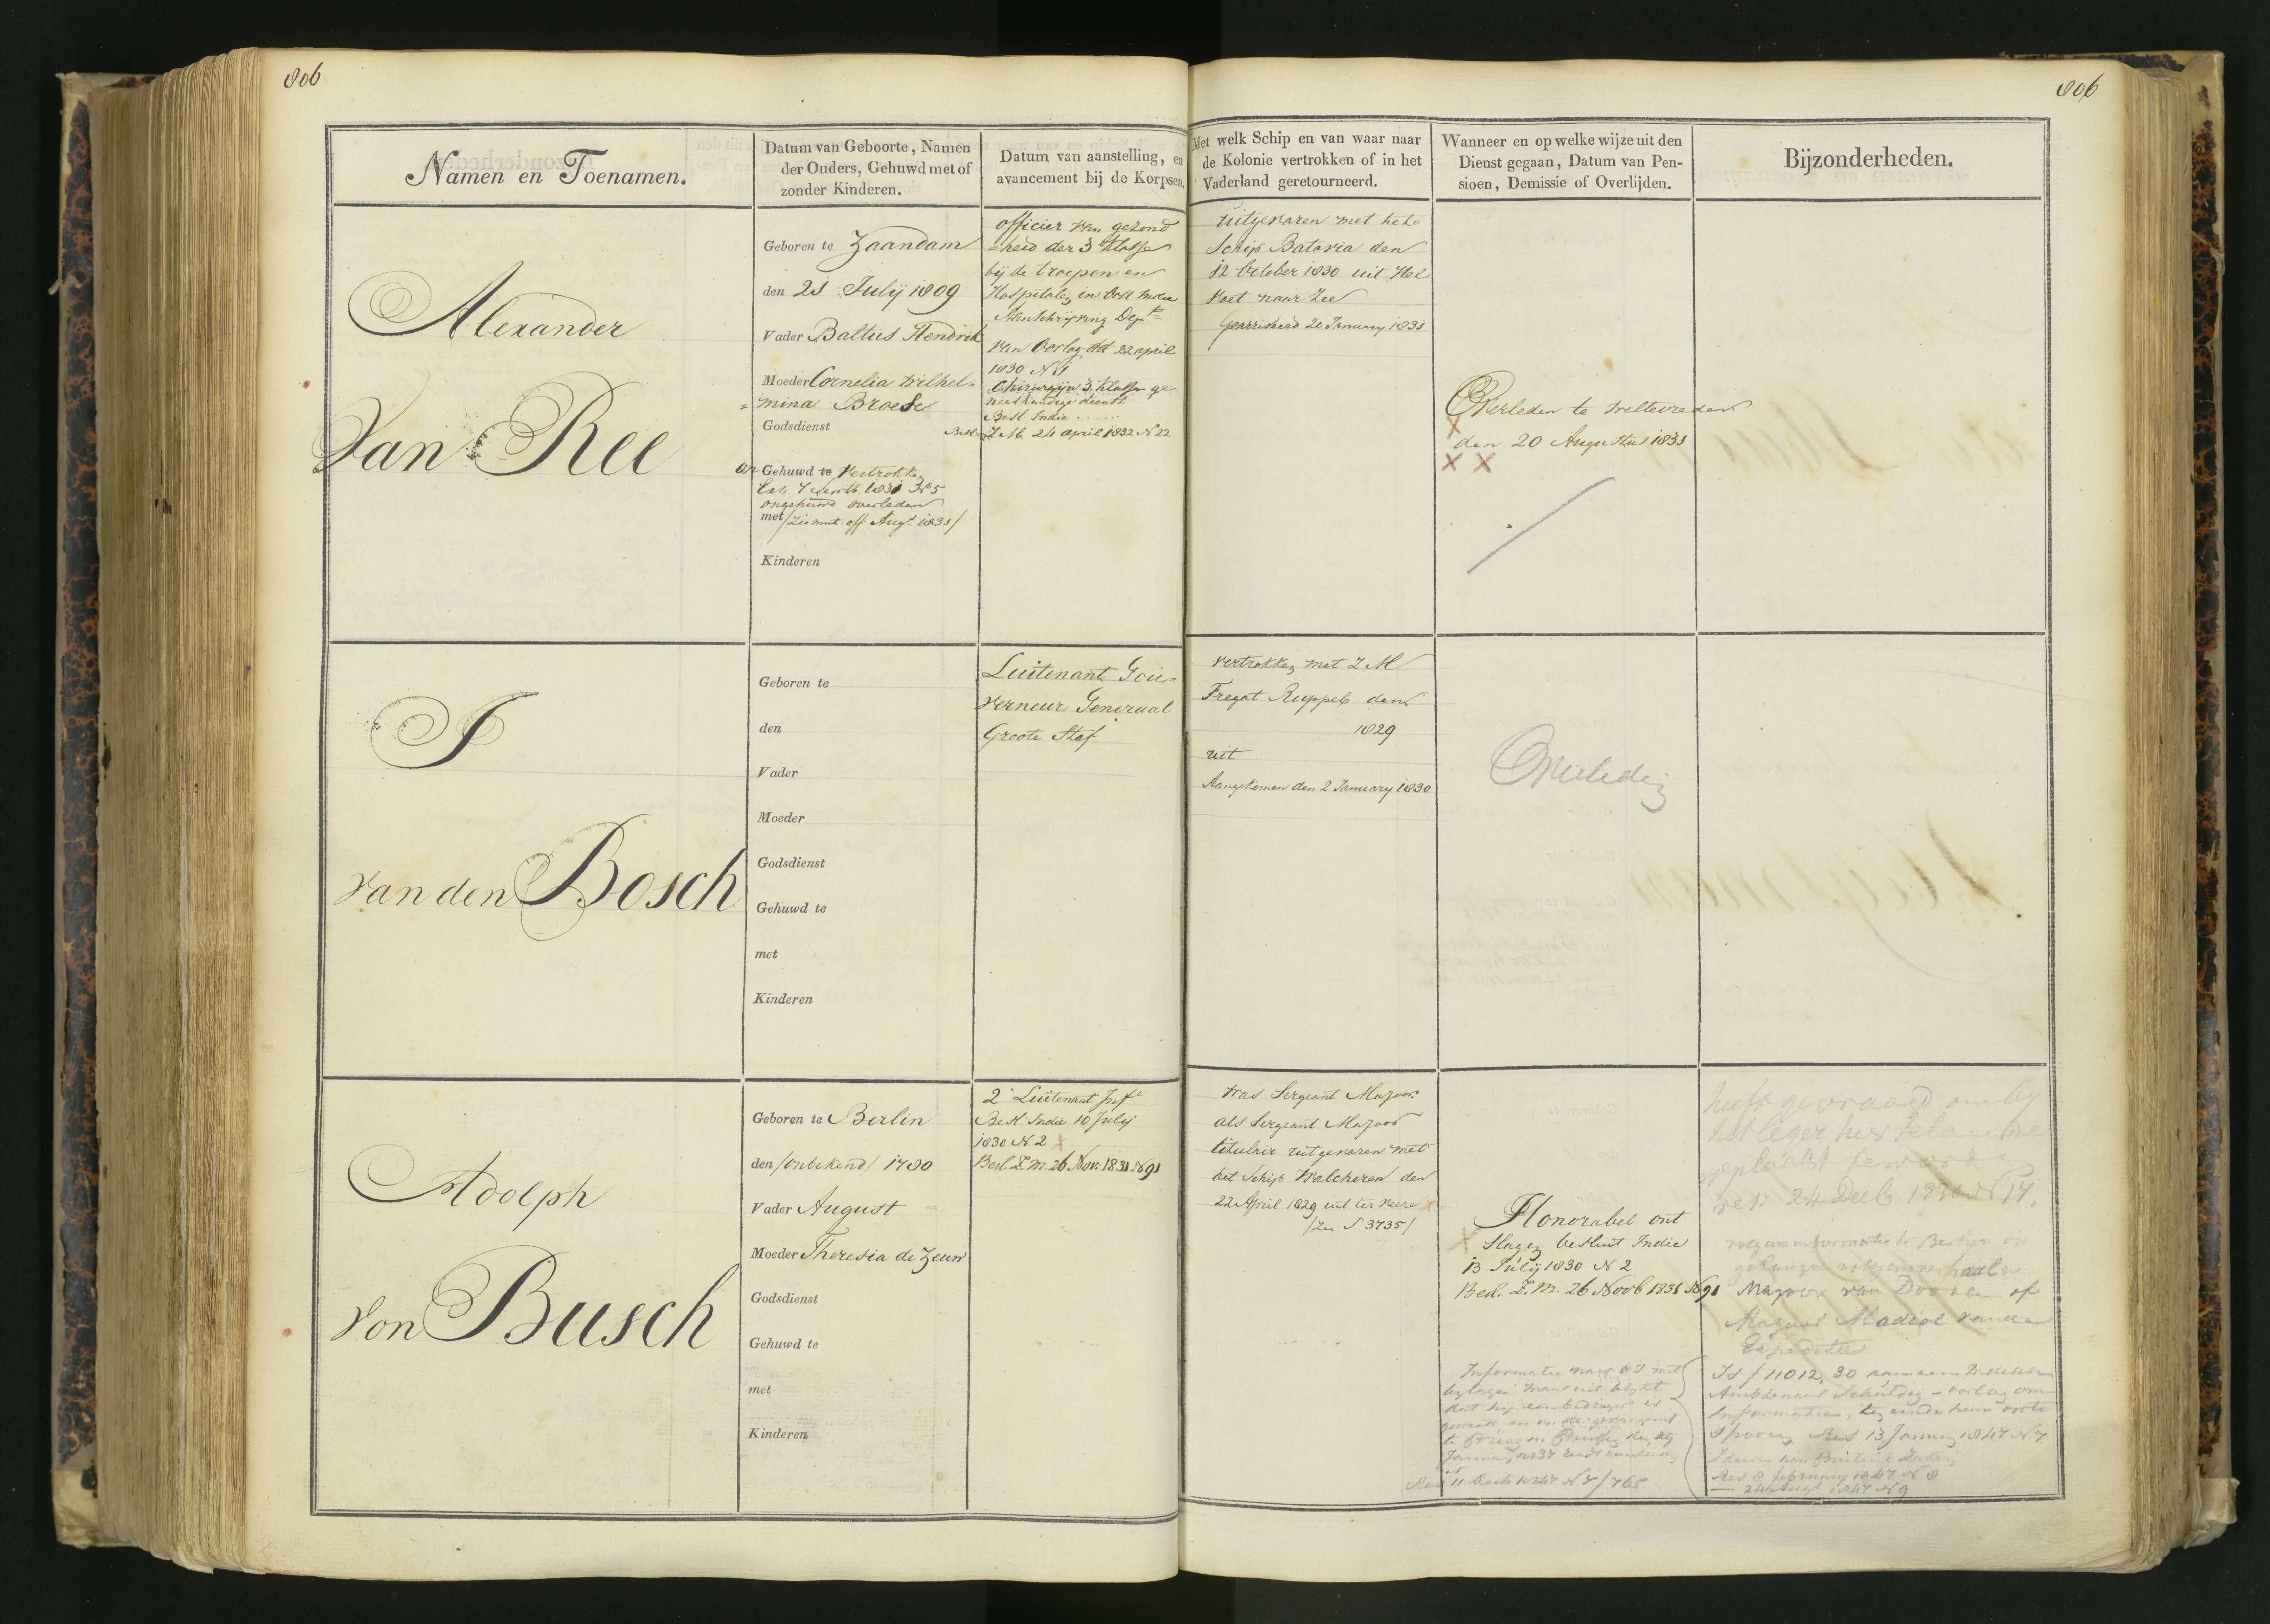 806
806
Namen en Toenamen.
Datum van Geboorte, Namen
der Ouders, Gehuwd met of
zonder Kinderen.
Datum van aanstelling, en
avancement bij de Korpsen.
Met welk Schip en van waar naar
de Kolonie vertrokken of in het
Vaderland geretourneerd.
Wanneer en op welke wijze uit den
Dienst gegaan, Datum van Pen-
sioen, Demissie of Overlijden.
Bijzonderheden.
Alexander
Van Ree
Geboren te Zaandam
den 21 Julij 1809
Vader Baltus Hendrik
Moeder Cornelia Wilhel=
=mina Broese
Godsdienst
Gehuwd te vertrokken
ongehuwd overleden
met /Zie mut: off Augs 1831/
Kinderen
officier van gezond
=heid der 3e klasse
bij de troepen en
Hospitalen in Oost Indie
Aanschrijving Dept
van Oorlog dd 22 april
1830 N 1
Chirurgijn 3e klasse ge
neeskundige dienst
Besl. Indie
Besl. Z.M. 24 april 1832 N 22
uitgevaren met het
Schip Batavia den
12 October 1830 uit Hel
voet naar Zee
Gearriveerd 20 January 1831
Overleden te Weltevreden
den 20 Augustus 1831
J
van den Bosch
Geboren te
den
Vader
Moeder
Godsdienst
Gehuwd te
met
Kinderen
Luitenant Gou=
verneur Generaal
Groote Staf
vertrokken met Z M
Fregat Ruppel den
1829
uit
Aangekomen den 2 January 1830
Overleden
Adolph
von Busch
Geboren te Berlin
den /onbekend/ 1780
Vader August
Moeder Theresia de Zeuw
Godsdienst
Gehuwd te
met
Kinderen
2e Luitenant Infe
Besl Indie 10 July
1830 N 2
Besl. Z.M. 26 Nov. 1831 N 91
was Sergeant Majoor
als Sergeant Majoor
titulair uitgevaren met
het Schip Walcheren den
22 April 1829 uit ter Veere
/Zie N 3735/
Honorabel ont
slagen besluit Indie
13 Julij 1830 N 2
Besl. Z.M. 26 Novb 1831 N 91
Informatie naar
bylagen waar uit blykt
dat hy een bedrieger is
te
11 Decb 1847 N 7/765
heeft gevraagd om by
het leger hier te lande
geplaatst te worden
res. 24 Decb 1830 N 14.
volgens informatie te Berlyn
Majoor van Dooren of
Majoor Madiol van de
Expeditie
Is f 11012,30
informatien, ten einde hem
Res 13 January 1847 N 7
Res 8 february 1847 N 8
24 Aug 1847 N 9